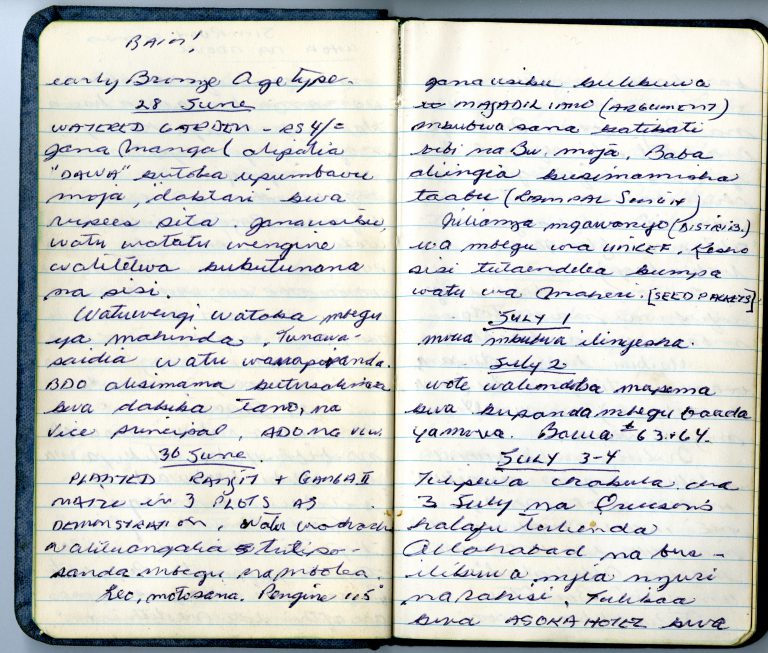 RAIN!
early Bronze Age type.
28 June
WATERED GARDEN - RS 4/=
Jana Mangal alipatia
"DAWA" kutoka upumbavu
moja, daktari kwa
rupees sita. Jana usiku,
watu watatu wengine
walitelwa kukutunana
na sisi.
Watu wengi watoka mbegu
ya mahinda, Tunawa-
saidia watu wanapopanda.
BDO alisimama kutusalimia
kwa dakika tano, na
Vice principal, ADO na
30 June
PLANTED RANJIT + GANGA II
MAIZE in 3 PLOTS AS
DEMONSTRATION, watu
walituangalia tulipo-
panda mbegu na mbolea.
Leo, moto sana. Pengine 115°
Jana usiku kulikuwa
MAJADILIANO (ARGUMENT)
mkubwa sana katikati
bibi na Bw. moja. Baba
aliingia kusimamisha
taabu (RAMPAL SINGH)
Tulianza mgawanyo (DISTRIB.)
wa mbegu wa UNICEF. Kesho
sisi tutaendelea kumpa
watu wa Maheri. [SEED PACKETS]
JULY 1
mvua mkubwa ilinyesha.
July 2
wote waliondoka mapema
kwa kupanda mbegu baada
ya mvua. Barua # 63 + 64.
JULY 3-4
Tulipewa chakula cha
3 July na Orucson's
halafu tulienda
Allahabad na bus -
ilikuwa njia nzuri
na rahisi. Tulikaa
kwa ASOKA HOTEL kwa